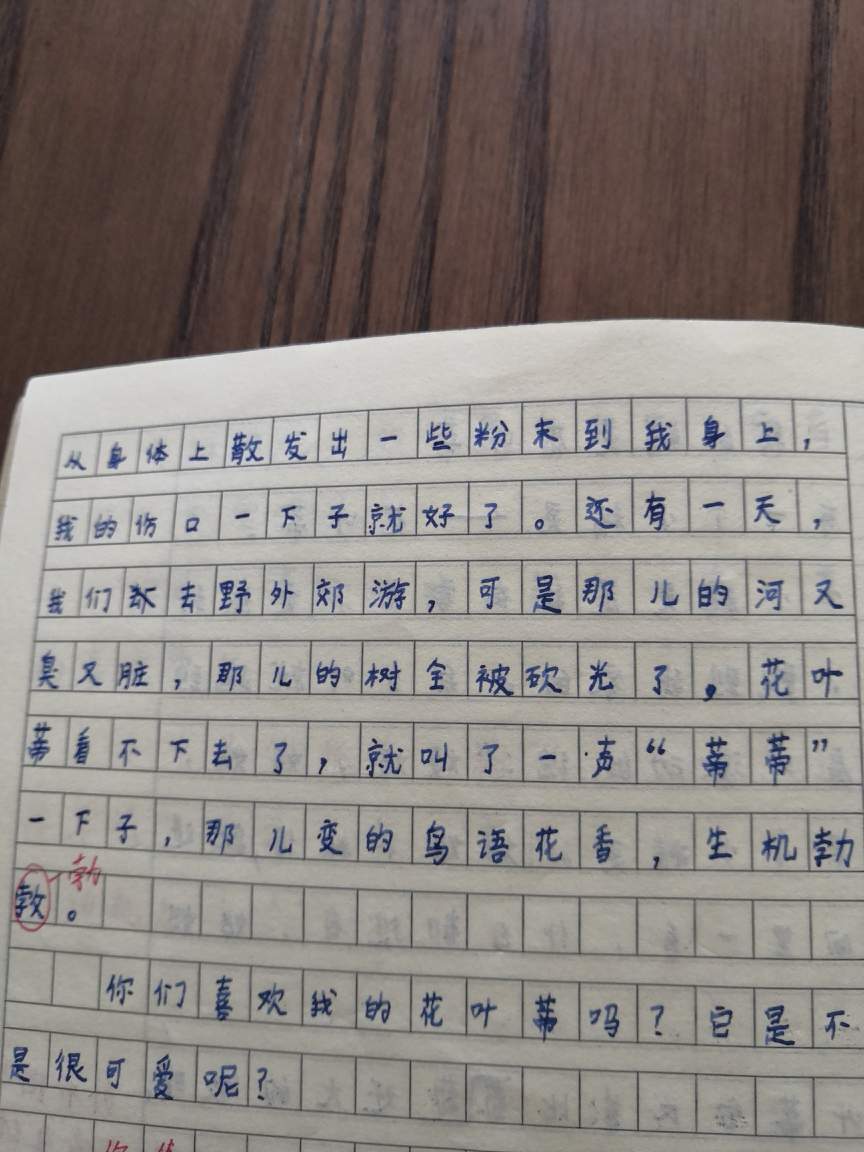 从身体上散发出一些粉末到我身上，
我的伤口一下子就好了。还有一天，
我们去野外郊游，可是那儿的河又
臭又脏，那儿的树全被砍光了。花叶
蒂看不下去了，就叫了一声“蒂蒂”
一下子，那儿变的鸟语花香，生机勃
勃
。
你们喜欢我的花叶蒂吗？它是不
是很可爱呢？